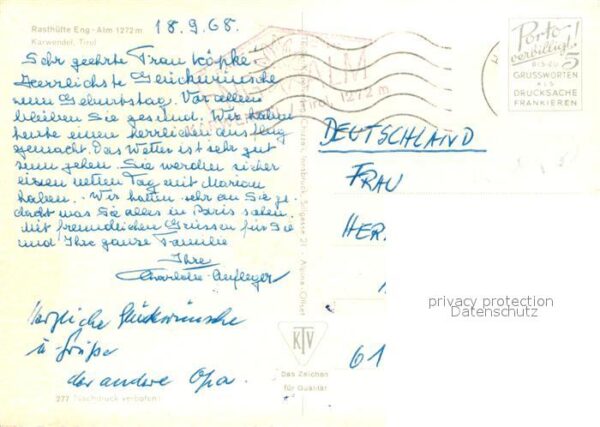 Rasthütte Eng-Alm 1272 m
Karwendel, Tirol
18.9.68.
Sehr geehrte Frau Köpke!
Herrlichste Glückwünsche
zum Geburtstag. Vor allem
bleiben Sie gesund. Wir haben
heute einen herrlichen Ausflug
gemacht. Das Wetter ist sehr gut
zum gehen. Sie werden sicher
einen netten Tag mit Marion
haben. Wir hatten sehr an Sie ge-
dacht was Sie alles in Paris sahen.
Mit freundlichen Grüssen für Sie
und Ihre ganze Familie
Ihre
Charlotte
Herzliche Glückwünsche
u. Grüße
der andere Opa.
277 Nachdruck verboten!
ALM
Tirol, 1272 m
Innsbruck, Sillgasse 21 Alpina-Offset
KTV
Das Zeichen
für Qualität
Porto
verbilligt!
BIS ZU 5
GRUSSWORTEN
ALS
DRUCKSACHE
FRANKIEREN
DEUTSCHLAND
FRAU
HER.
61
privacy protection
Datenschutz